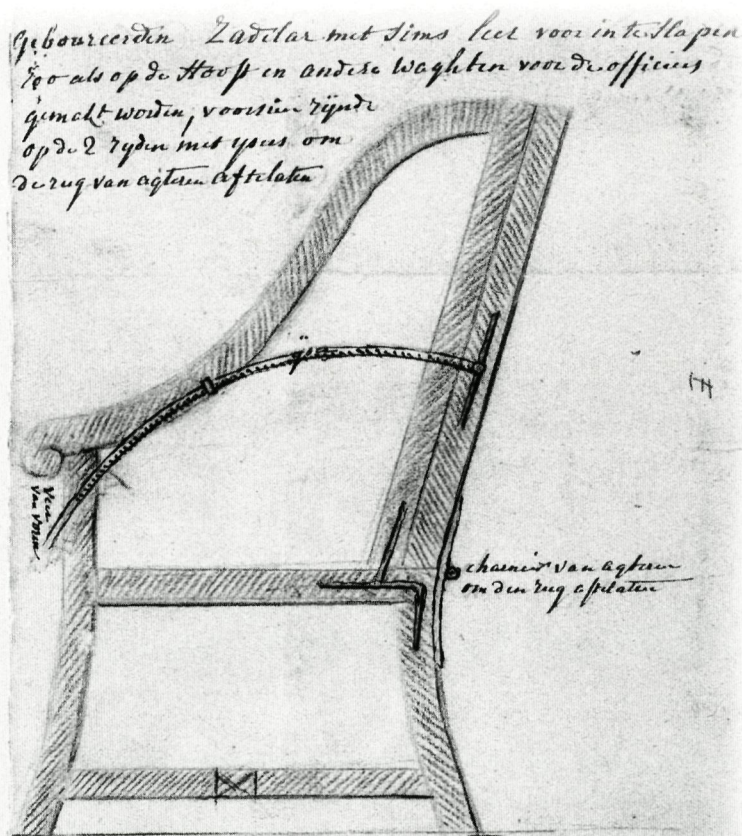 Gebourceerden Zadelar met sims leer voor in te slapen
Zoo als op de Hooft en andere Waghten voor de officiers
gemakt worden, voorsien zijnde
op de 2 zyden met yser om
de rug van agteren af te laten
yser
van voren
charnier van agteren
om den rug af te laten